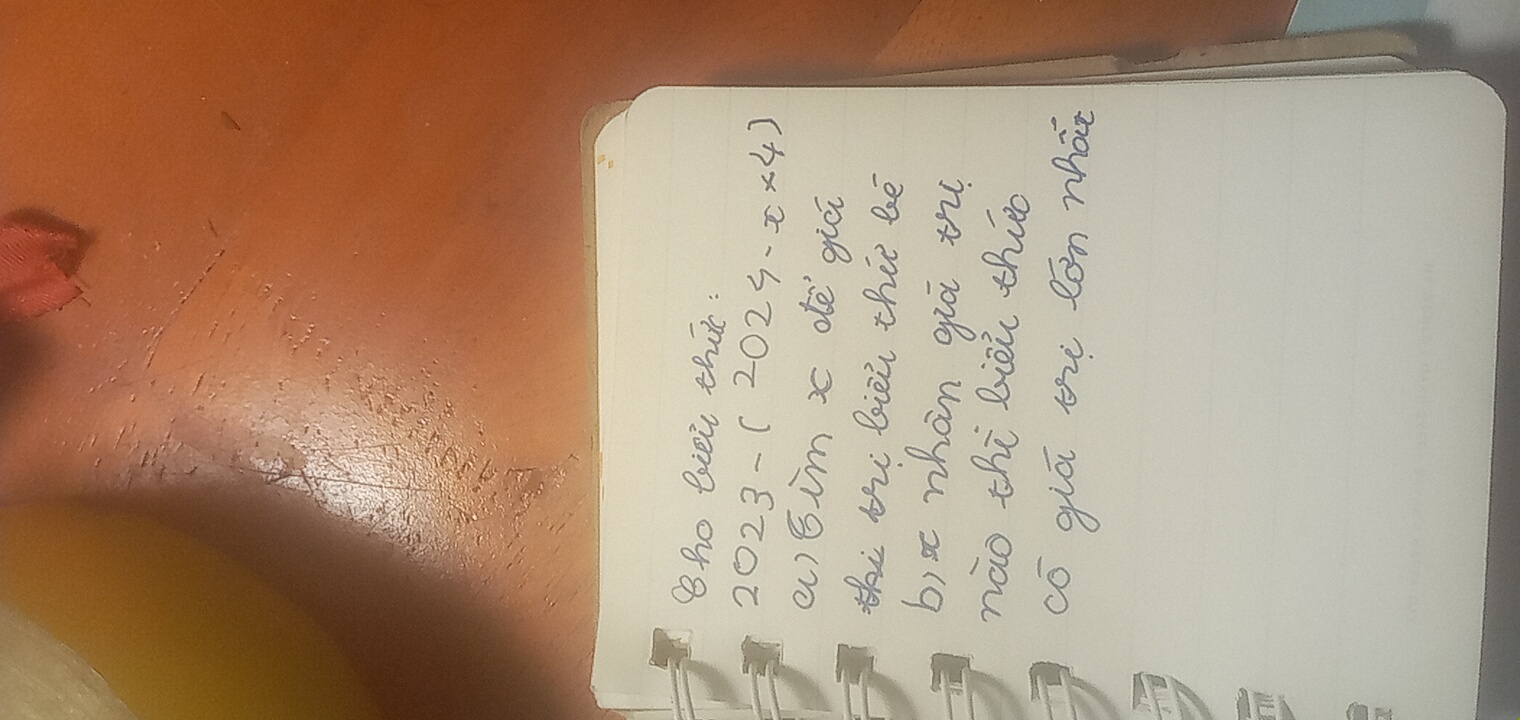 Cho biểu thức:
2023 - ( 2024 - x × 4)
a) Tìm x để giá
trị biểu thức bé
b) x nhân giá trị
nào thì biểu thức
có giá trị lớn nhất